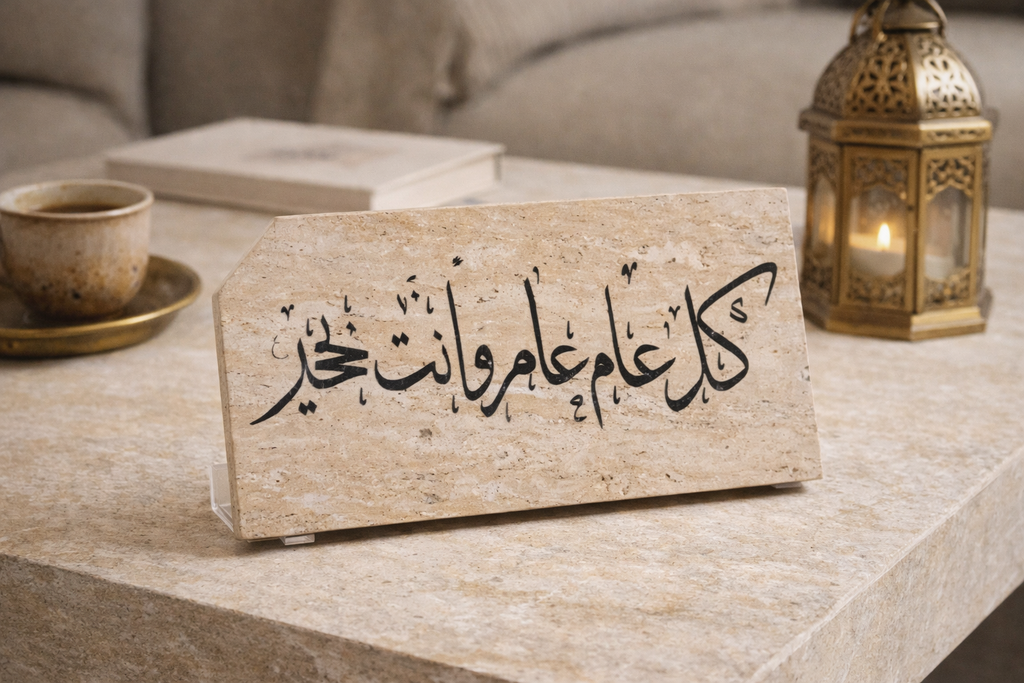 كل عام عامر وأنت بخير